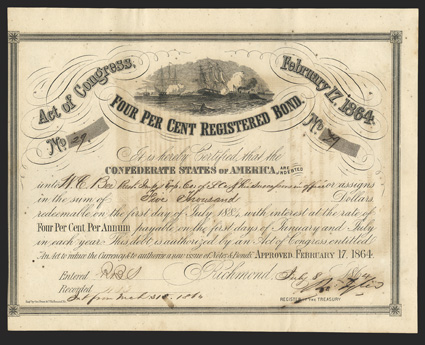 Act of Congress, February 17, 1864.
Four Per Cent Registered Bond.
No 29 No 29
It is hereby Certified, that the
Confederate States of America, are indebted
unto W. C. Bee Imp. Exp. Co. of S.C. & his successors in office or assigns
in the sum of Five Thousand Dollars
redeemable on the first day of July 188, with interest at the rate of
Four Per Cent Per Annum payable on the first days of January and July
in each year. This debt is authorized by an Act of Congress entitled
An Act to reduce the Currency & to authorize a new issue of Notes & Bonds Approved February 17, 1864.
Entered Richmond July 8 1864
Recorded
Int from 1864 Register of the Treasury